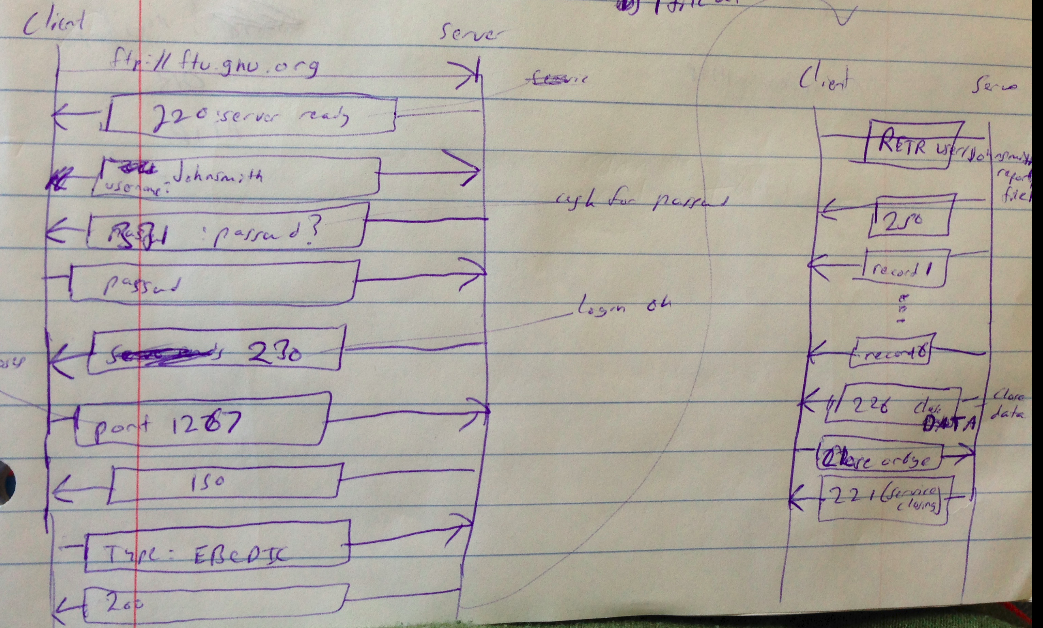 Client
Server
ftp://ftu.gnu.org
220 server ready
username: Johnsmith
: passwd?
ask for passwd
passwd
Login ok
230
port 1267
150
Type: EBCDIC
200
Client
RETR user/Johnsmith
report
file1
250
record 1
record 6
226 close
DATA
close
data
Close
221 (service
closing)